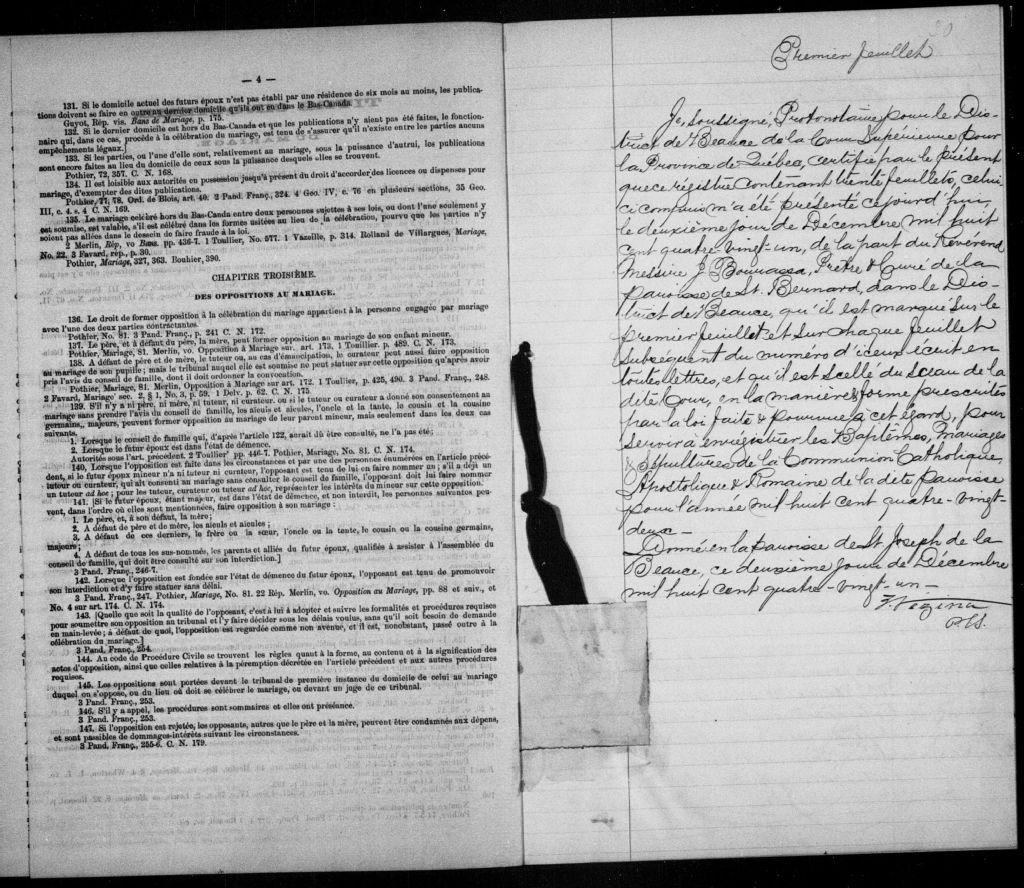 — 4 —
131. Si le domicile actuel des futurs époux n'est pas établi par une résidence de six mois au moins, les publica-
tions doivent se faire en outre au dernier domicile qu'ils ont eu dans le Bas-Canada.
Guyot, Rép. vis. Bans de Mariage, p. 175.
132. Si le dernier domicile est hors du Bas-Canada et que les publications n'y aient pas été faites, le fonction-
naire qui, dans ce cas, procède à la célébration du mariage, est tenu de s'assurer qu'il n'existe entre les parties aucuns
empêchements légaux.
133. Si les parties, ou l'une d'elles sont, relativement au mariage, sous la puissance d'autrui, les publications
sont encore faites au lieu du domicile de ceux sous la puissance desquels elles se trouvent.
Pothier, 72, 357. C. N. 168.
134. Il est loisible aux autorités en possession jusqu'à présent du droit d'accorder des licences ou dispenses pour
mariage, d'exempter des dites publications.
Pothier, 77, 78. Ord. de Blois, art. 40. 2 Pand. Franç., 324. 4 Geo. IV, c. 76 en plusieurs sections, 35 Geo.
III, c. 4. s. 4 C. N. 169.
135. Le mariage célébré hors du Bas-Canda entre deux personnes sujettes à ses lois, ou dont l'une seulement y
est soumise, est valable, s'il est célébré dans les formes usitées au lieu de la célébration, pourvu que les parties n'y
soient pas allées dans le dessein de faire fraude à la loi.
2 Merlin, Rép, vo Bans. pp. 436-7. 1 Toullier, No. 577. 1 Vazeille, p. 314. Rolland de Villargues, Mariage,
No. 22. 3 Favard, rép., p. 30.
Pothier, Mariage, 327, 363. Bouhier, 390.
CHAPITRE TROISIÈME.
DES OPPOSITIONS AU MARIAGE.
136. Le droit de former opposition à la célébration du mariage appartient à la personne engagée par mariage
avec l'une des deux parties contractantes.
Pothier, No. 81. 3 Pand. Franç., p. 241 C. N. 172.
137. Le père, et à défaut du père, la mère, peut former opposition au mariage de son enfant mineur.
Pothier, Mariage, 81. Merlin, vo. Opposition à Mariage sur. art. 173. 1 Toullier, p. 489. C. N. 173.
138. A défaut de père et de mère, le tuteur ou, au cas d'émancipation, le curateur peut aussi faire opposition
au mariage de son pupille; mais le tribunal auquel elle est soumise ne peut statuer sur cette opposition qu'après avoir
pris l'avis du conseil de famille, dont il doit ordonner la convocation.
Pothier, Mariage, 81. Merlin, Opposition à Mariage sur art. 172. 1 Toullier, p. 425, 490. 3 Pand. Franç., 248.
2 Favard, Mariage sec. 2, § 1, No. 3, p. 59. 1 Delv. p. 62. C. N. 175.
139. S'il n'y a ni père, ni mère, ni tuteur, ni curateur, ou si le tuteur ou curateur a donné son consentement au
mariage sans prendre l'avis du conseil de famille, les aïeuls et aïeules, l'oncle et la tante, le cousin et la cousine
germains,, majeurs, peuvent former opposition au mariage de leur parent mineur, mais seulement dans les deux cas
suivants.
1. Lorsque le conseil de famille qui, d'après l'article 122, aurait dû être consulté, ne l'a pas été;
2. Lorsque le futur époux est dans l'état de démence.
Autorités sous l'art. précédent. 2 Toullier pp. 446-7. Pothier, Mariage, No. 81. C. N. 174.
140. Lorsque l'opposition est faite dans les circonstances et par une des personnes énumérées en l'article précé-
dent, si le futur époux mineur n'a ni tuteur ni curateur, l'opposant est tenu de lui en faire nommer un; s'il a déjà un
tuteur ou curateur, qui ait consenti au mariage sans consulter le conseil de famille, l'opposant doit lui faire nommer
un tuteur ad hoc; pour les tuteur, curateur ou tuteur ad hoc, représenter les intérêts du mineur sur cette opposition.
141. [Si le futur époux, étant majeur, est dans l'état de démence, et non interdit, les personnes suivantes peu-
vent, dans l'ordre où elles sont mentionnées, faire opposition à son mariage:
1. Le père, et, à son défaut, la mère;
2. A défaut de père et de mère, les aïeuls et aïeules;
3. A défaut de ces derniers, le frère ou la sœur, l'oncle ou la tante, le cousin ou la cousine germains,
majeurs;
4. A défaut de tous les sus-nommés, les parents et alliés du futur époux, qualifiés à assister à l'assemblée du
conseil de famille, qui doit être consulté sur son interdiction.]
3 Pand. Franç., 246-7.
142. Lorsque l'opposition est fondée sur l'état de démence du futur époux, l'opposant est tenu de promouvoir
son interdiction et d'y faire statuer sans délai.
3 Pand. Franç., 247. Pothier, Mariage, No. 81. 22 Rép. Merlin, vo. Opposition au Mariage, pp. 88 et suiv., et
No. 4 sur art. 174. C. N. 174.
143. [Quelle que soit la qualité de l'opposant, c'est à lui à adopter et suivre les formalités et procédures requises
pour soumettre son opposition au tribunal et l'y faire décider sous les délais voulus, sans qu'il soit besoin de demande
en main-levée; à défaut de quoi, l'opposition est regardée comme non avenue, et il est, nonobstant, passé outre à la
célébration du mariage.]
3 Pand. Franç., 254.
144. Au code de Procédure Civile se trouvent les règles quant à la forme, au contenu et à la signification des
actes d'opposition, ainsi que celles relatives à la péremption décrétée en l'article précédent et aux autres procédures
requises.
145. Les oppositions sont portées devant le tribunal de première instance du domicile de celui au mariage
duquel on s'oppose, ou du lieu où doit se célébrer le mariage, ou devant un juge de ce tribunal.
3 Pand. Franç., 253.
146. S'il y a appel, les procédures sont sommaires et elles ont préséance.
3 Pand. Franç., 253.
147. Si l'opposition est rejetée, les opposants, autres que le père et la mère, peuvent être condamnés aux dépens,
et sont passibles de dommages-intérêts suivant les circonstances.
3 Pand. Franç., 255-6. C. N. 179.
Premier feuillet
Je, soussigné, Protonotaire pour le Dis-
trict de Beauce de la Cour Supérieure pour
la Province de Québec, certifie par le présent
que ce régistre contenant trente feuillets, celui
ci compris m'a été présenté ce jourd'hui,
le deuxième jour de Décembre, mil huit
cent quatre-vingt-un, de la part du Révérend
Messire J. Bourassa, Prêtre & Curé de la
paroisse de St. Bernard, dans le Dis-
trict de Beauce, qu'il est marqué sur le
premier feuillet et sur chaque feuillet
subséquent du numéro d'iceux écrit en
toutes lettres, et qu'il est scellé du sceau de la
dite Cour, en la manière & forme prescrites
par la loi faite & pourvue à cet égard, pour
servir à enregistrer les Baptêmes, Mariages
& Sépultures de la Communion Catholique,
Apostolique & Romaine de la dite Paroisse
pour l'année mil huit cent quatre-vingt-
deux—
Donné en la Paroisse de St Joseph de la
Beauce, ce deuxième jour de Décembre
mil huit cent quatre-vingt-un—
Vézina
P.C.S.